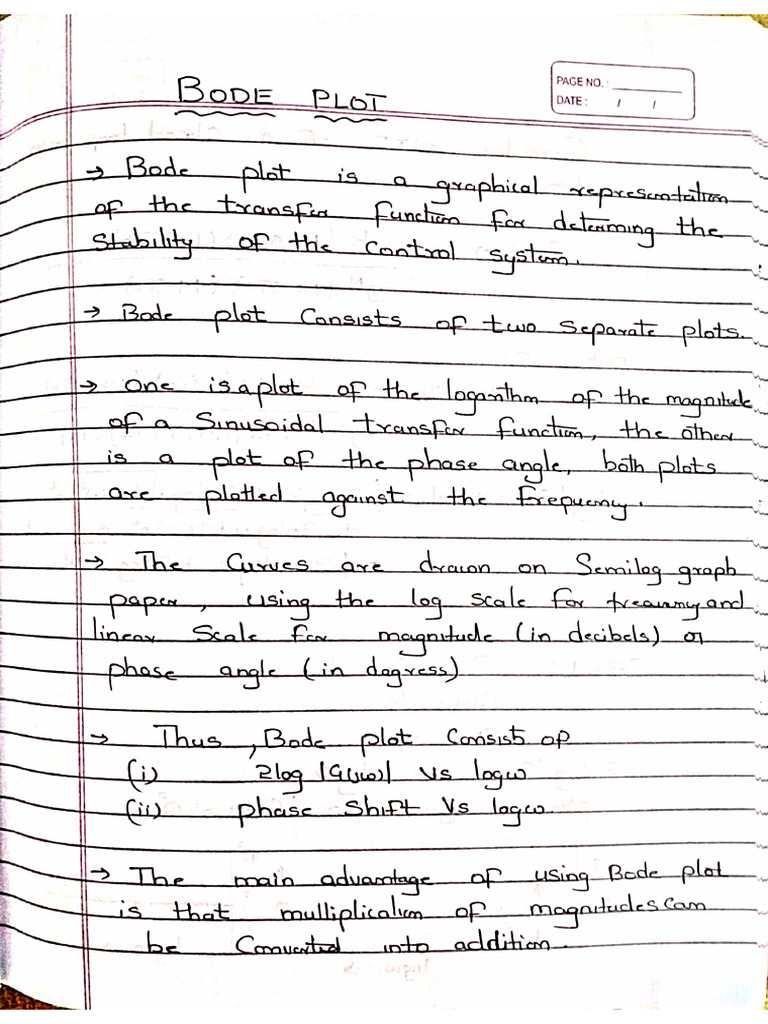 BODE PLOT
PAGE NO. :
DATE : / /
→ Bode plot is a graphical representation
of the transfer function for determing the
Stability of the control system.
→ Bode plot Consists of two separate plots.
→ One is a plot of the logarithm of the magnitude
of a Sinusoidal transfer function, the other
is a plot of the phase angle, both plots
are plotted against the frequency.
→ The Curves are drawn on Semilog graph
paper, using the log scale for frequency and
linear Scale for magnitude (in decibels) or
phase angle (in degress)
→ Thus, Bode plot Consists of
(i) 2log |G(jω)| Vs logω
(ii) phase Shift Vs logω
→ The main advantage of using Bode plot
is that multiplication of magnitudes can
be Converted into addition.